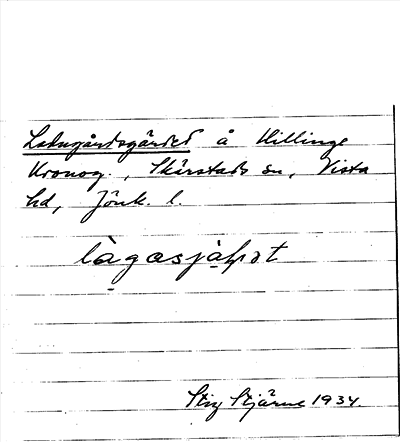 Ladugårdsgärdet å Hillinge
Kronog., Skärstads sn, Vista
hd, Jönk. l.
Stig Stjärne 1934.